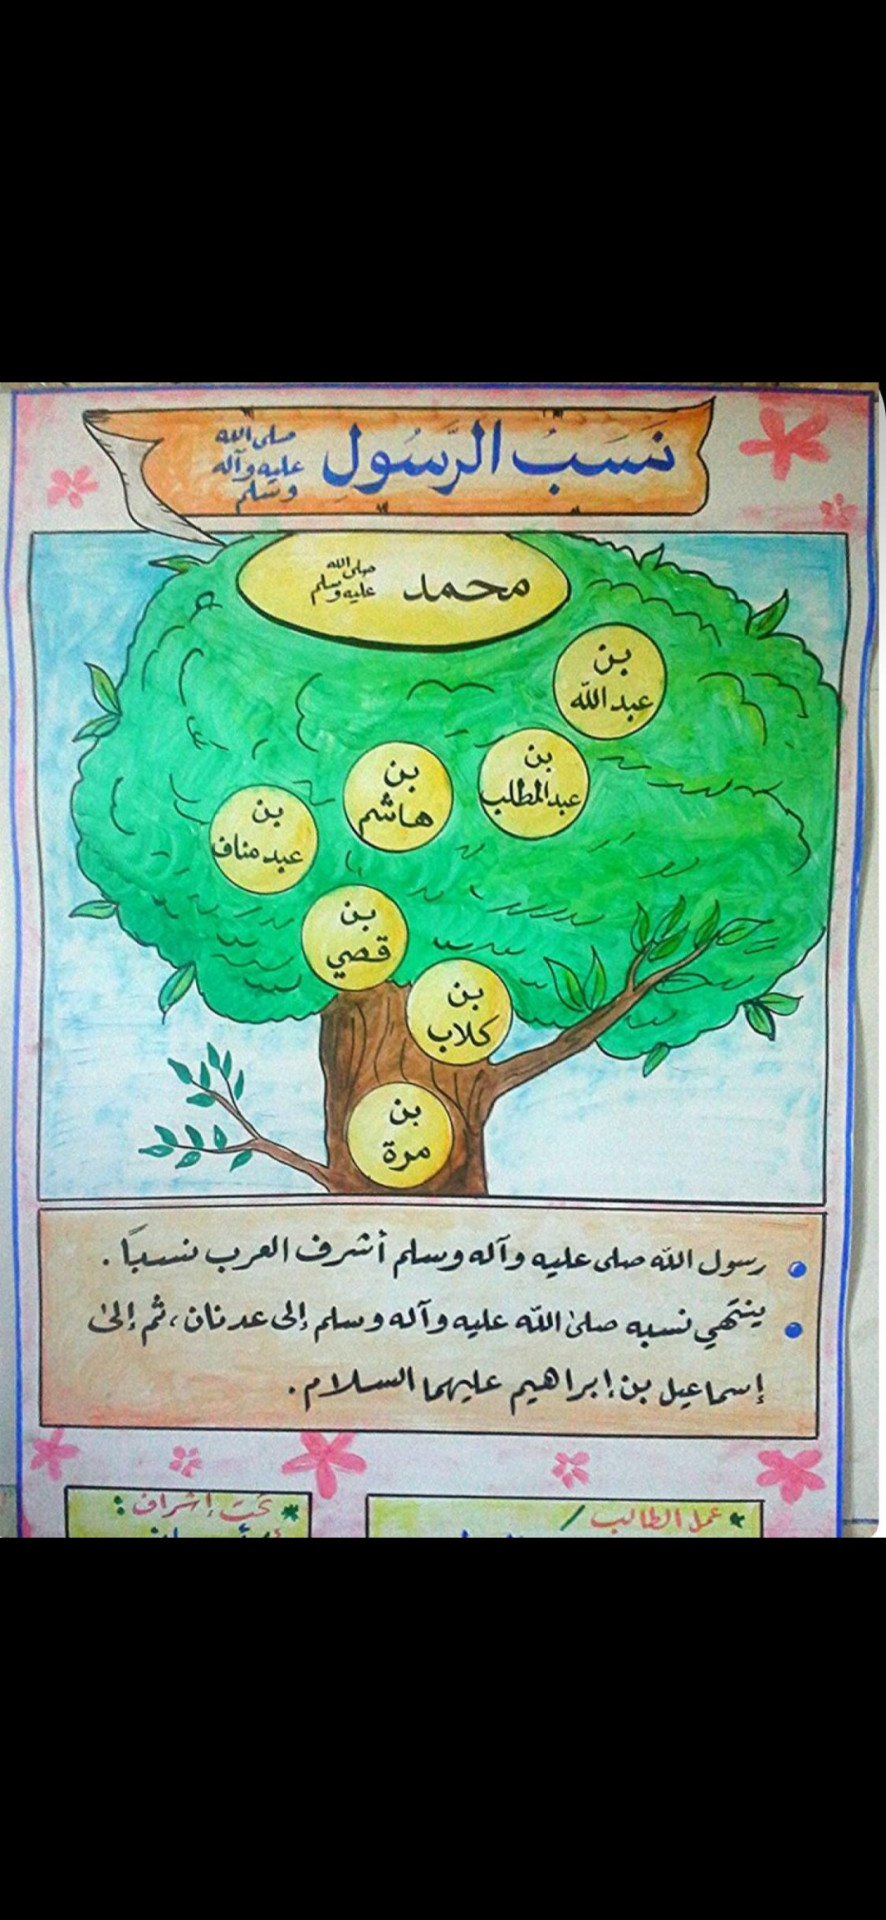 نَسَبُ الرَّسُولِ
صلى الله
عليه وآله
وسلم
محمد
صلى الله
عليه وسلم
بن
عبد الله
بن
عبد المطلب
بن
هاشم
بن
عبد مناف
بن
قصي
بن
كلاب
بن
مرة
رسول الله صلى عليه وآله وسلم أشرف العرب نسباً.
ينتهي نسبه صلى الله عليه وآله وسلم إلى عدنان، ثم إلى
إسماعيل بن إبراهيم عليهما السلام.
* عمل الطالب /
* تحت إشراف :